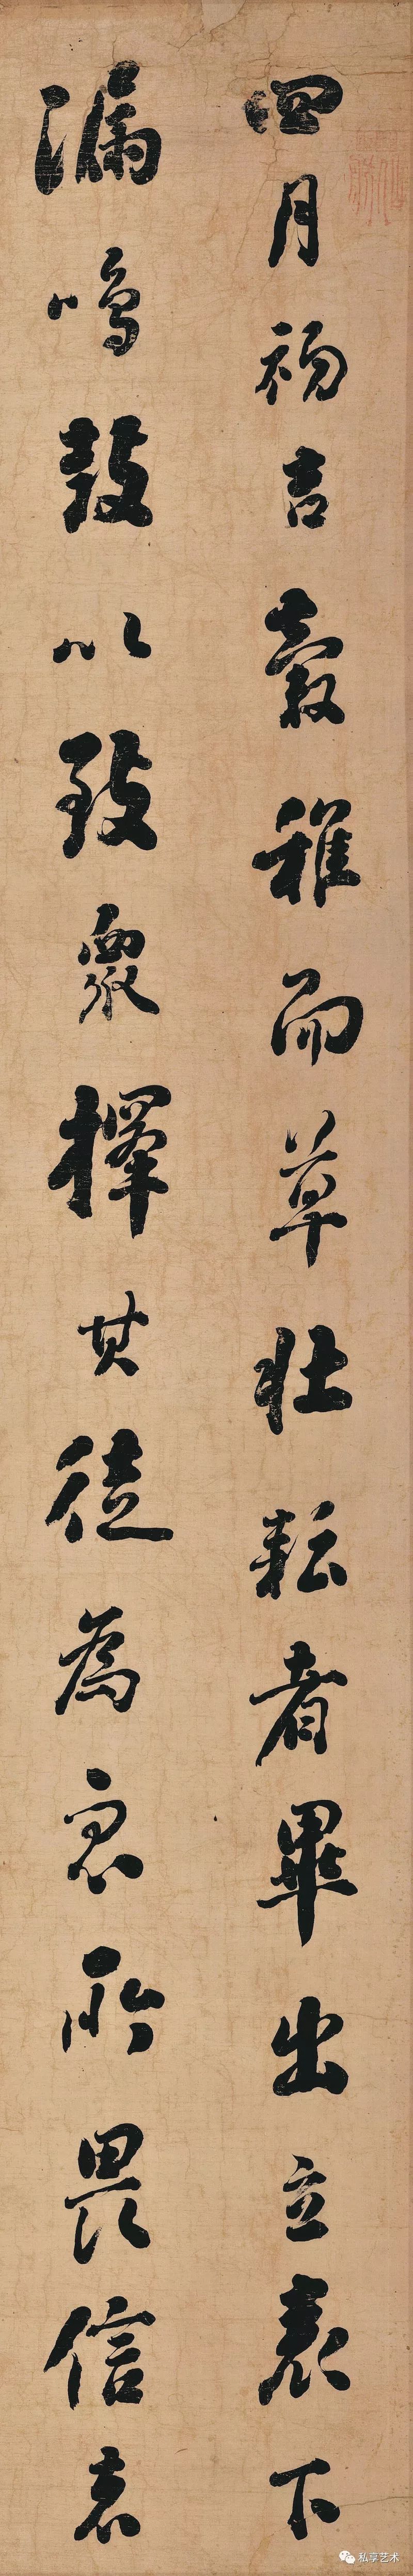 四月初吉穀稚而草壯耘者畢出立表下
漏鳴鼓以致衆擇其徒為衆所畏信者
私享艺术